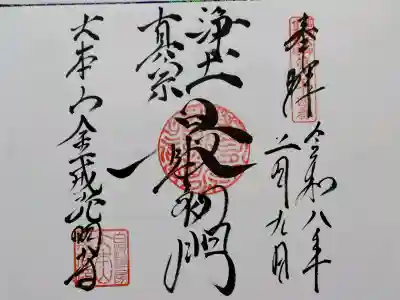 奉拝
令和八年
二月九日
浄土
真宗
最初門
大本山金戒光明寺